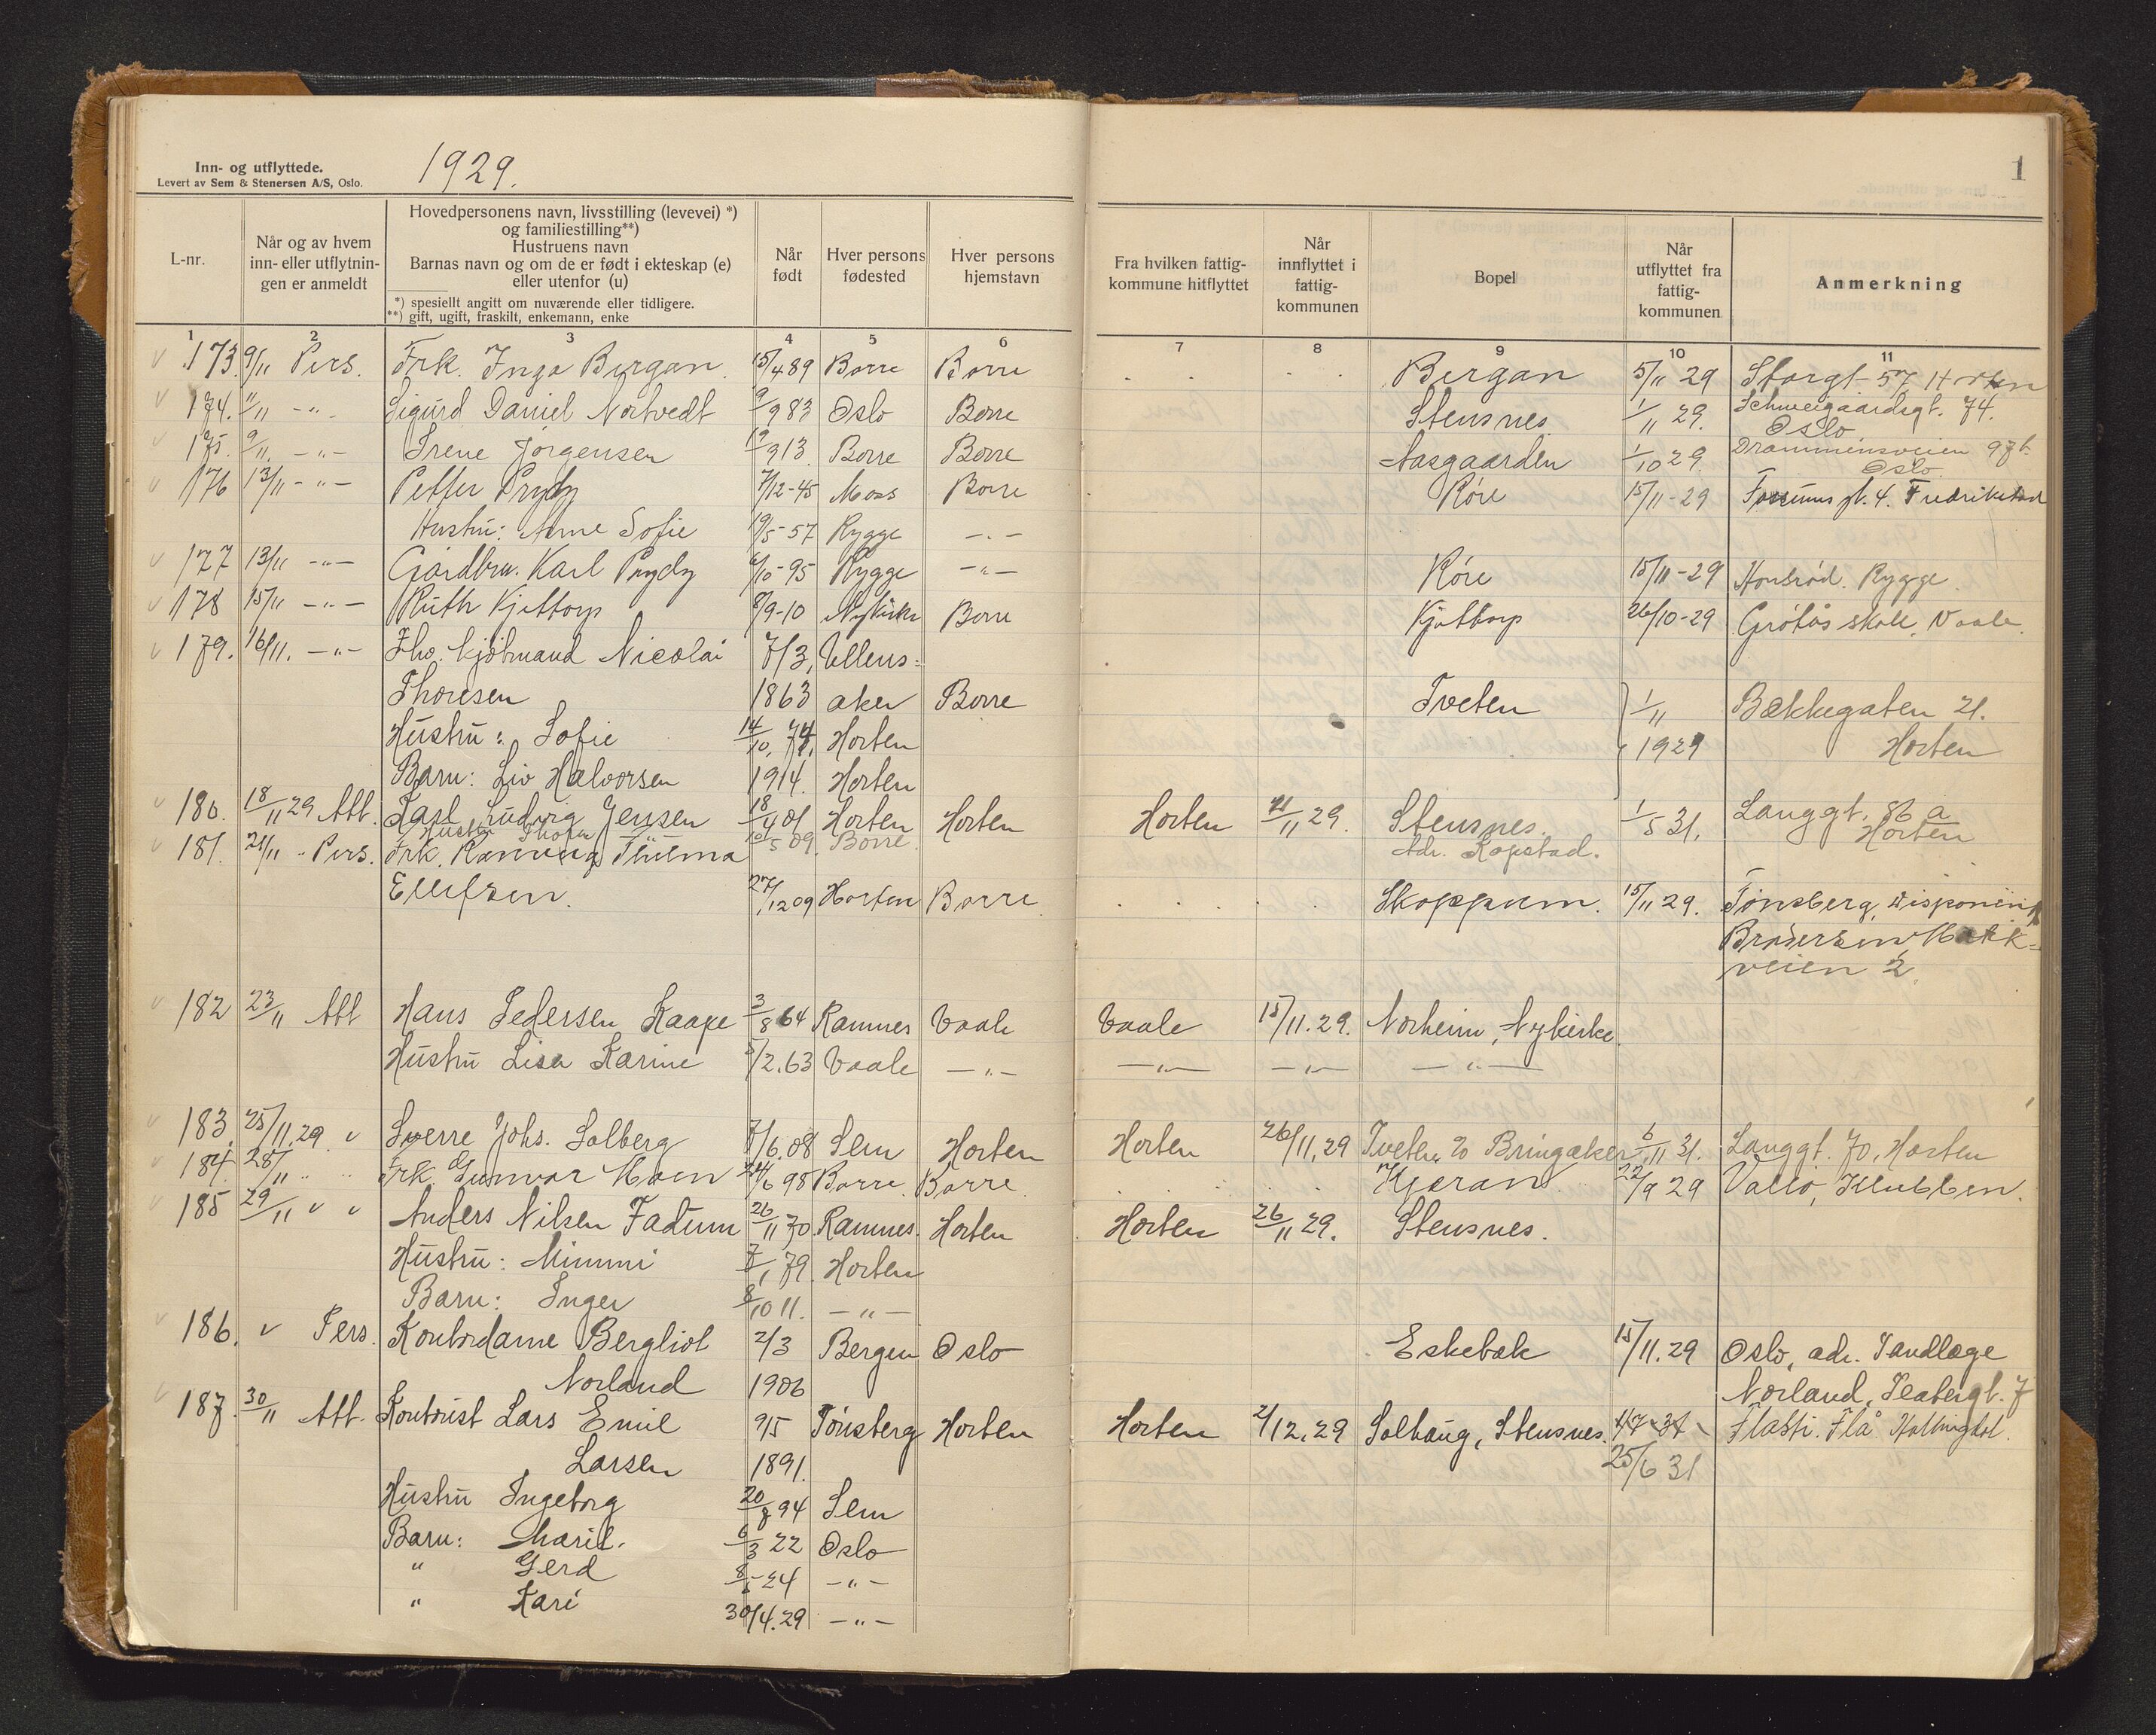 Inn- og utflyttede.
Levert av Sem & Stenersen A/S, Oslo.
1929.
1
L-nr.
Når og av hvem
inn- eller utflytnin-
gen er anmeldt
Hovedpersonens navn, livsstilling (levevei) *)
og familiestilling**)
Hustruens navn
Barnas navn og om de er født i ekteskap (e)
eller utenfor (u)
*) spesiellt angitt om nuværende eller tidligere.
**) gift, ugift, fraskilt, enkemann, enke
Når
født
Hver persons
fødested
Hver persons
hjemstavn
Fra hvilken fattig-
kommune hitflyttet
Når
innflyttet i
fattig-
kommunen
Bopel
Når
utflyttet fra
fattig-
kommunen
Anmerkning
1 2 3 4 5 6 7 8 9 10 11
173. 9/11 Pers. Frk. Inga Bergan. 15/4 89 Borre Borre Bergan 5/11 29 Storgt 57 Horten
174. 11/11 -"- Sigurd Daniel Nortvedt 9/9 83 Oslo Borre Stensnes 1/11 29. Schweigaardsgt. 74.
Oslo
175. 9/11. -"- Irene Jørgensen 19/9 13. Borre Borre Aasgaarden 1/10 29. Drammensveien 97b.
Oslo
176 13/11 -"- Petter Prydz 7/12-45 Moss Borre Røre 15/11-29 gt. 4. Fredrikstad
Hustru: Anne Sofie 19/5-57 Rygge -"-
177 13/11 -"- Gårdbr. Karl Prydz 6/10-95 Rygge -"- Røre 15/11-29 Rygge.
178 15/11 -"- Ruth Kjøttorp 8/9-10 Nykirke Borre Kjøttorp 26/10-29 Gråtås skole, Vaale.
179. 16/11. -"- Fhv. kjøbmand Nicolai 7/3, Ullens=
Thoresen 1863 aker Borre Tveten 1/11 Bækkegaten 21.
Hustru: Sofie 14/10, 74, Horten 1929 Horten
Barn: Liv Halvorsen 1914. Horten
180. 18/11 29 Att. Karl Ludvig Jensen 18/4 01 Horten Horten Horten 21/11 29. Stensnes. 1/5 31. Langgt. 86 a
Horten
Hustru Thora 10/5 09. Borre. Adr. Kopstad.
181. 21/11 - Pers. Frk. Ranveig Thelma
Ellefsen. 27/12 09 Horten Borre. Skoppum. 15/11 29. Tønsberg,
veien 2.
182 23/11 Att Hans Pedersen Kaape 3/8 64 Ramnes Vaale Vaale 15/11.29. Norheim, Nykirke.
Hustru Lisa Karine 3/2.63 Vaale -"- -"- -"- -"-
183. 25/11.29 " Sverre Johs. Solberg 7/6.08 Sem Horten Horten 26/11.29 Tveten, Bringaker 6/11 31. Langgt. 70, Horten
184. 28/11 " Frk. Gunvor Moen 24/6 98 Borre. Borre. Kjæran. 22/9 29 Vallø, Klubben.
185 29/11 " " Anders Nilsen Fadum 26/11 70. Ramnes. Horten Horten 26/11 29. Stensnes.
Hustru: Mimmi 7/1 79. Horten
Barn: Inger 8/10 11. -"-
186. " Pers. Kontordame Bergliot 2/3 Bergen Oslo Eskebæk 15/11.29 Oslo, adr. Tandlæge
Norland 1906 Norland, Teatergt. 7
187. 30/11 Att. Kontorist Lars Emil 9/5 Tønsberg Horten Horten 2/12.29 Solhaug, Stensnes. 1/7 31 Flå Hallingdal.
Larsen 1891. 25/6 31
Hustru Ingeborg 20/8 94 Sem
Barn: Marit. 6/3 22 Oslo
" Gerd 8/5 -24 -"-
" Kari 30/4.29 -"-